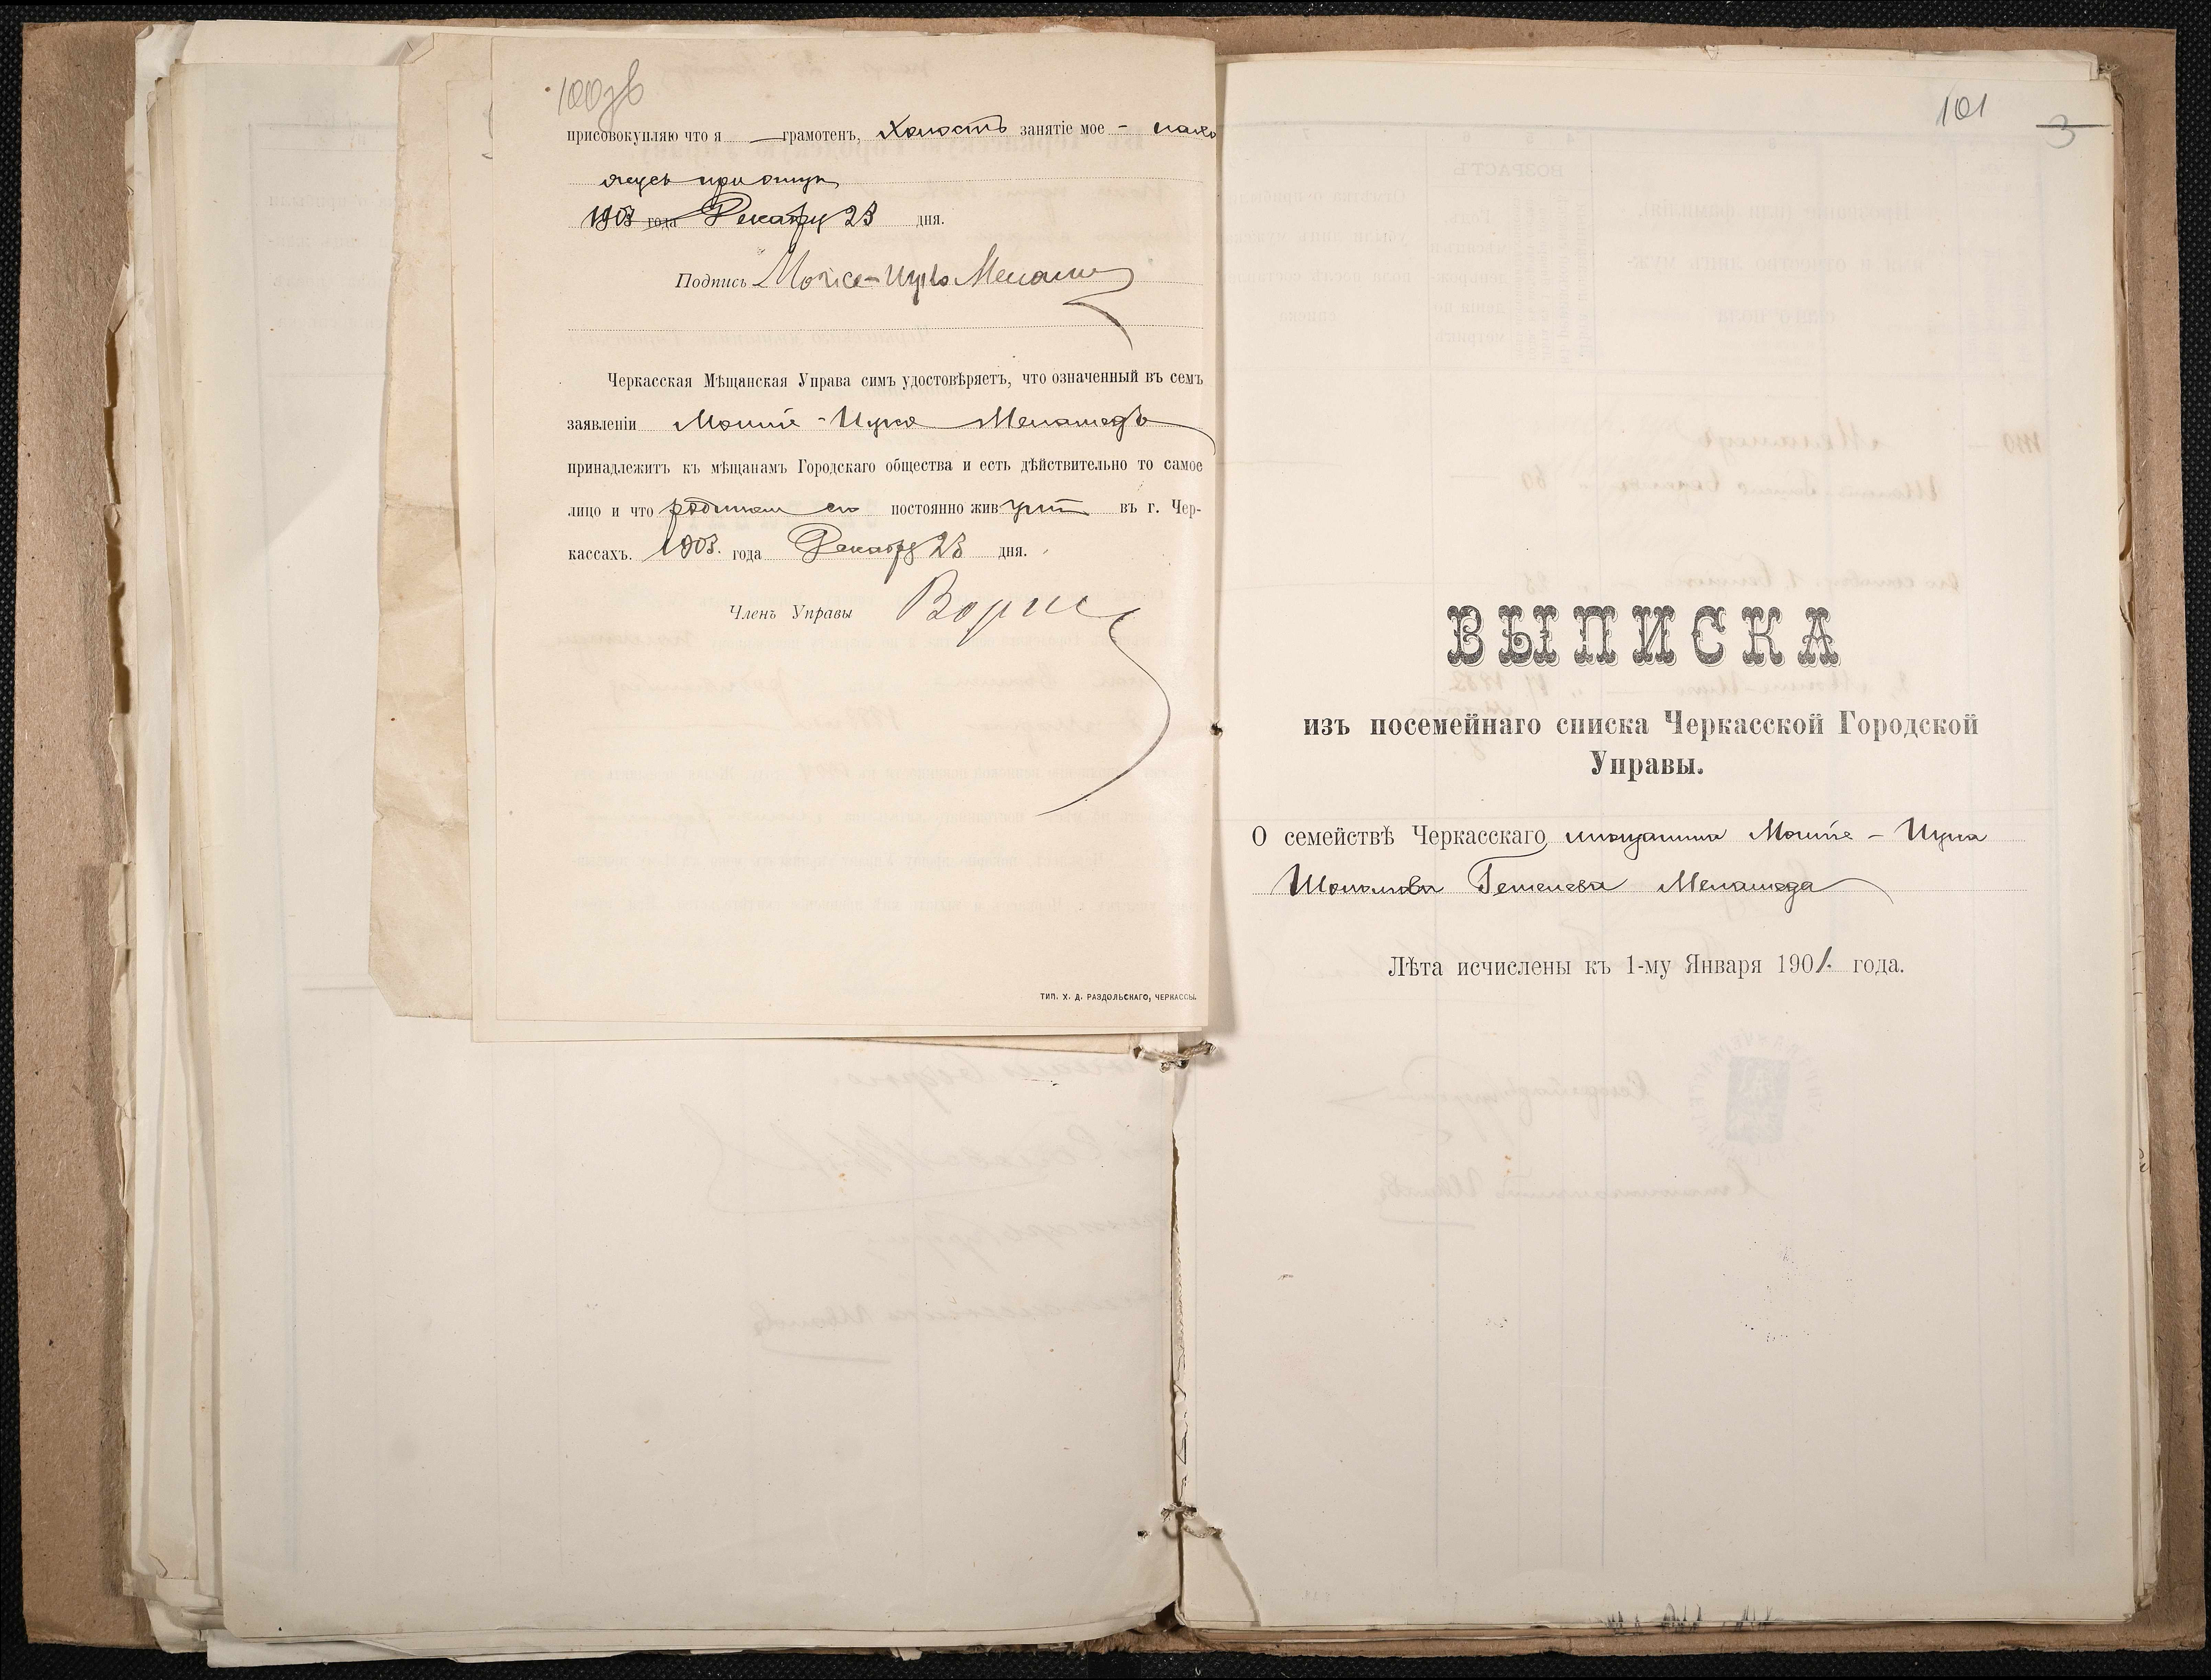 100зв
присовокупляю что я — грамотенъ, холостъ занятіе мое - нахо
дясь при отцѣ
1903 года Декабря 23 дня.
Подпись Мойсе-Цукъ
Черкасская Мѣщанская Управа симъ удостовѣряетъ, что означенный въ семъ
заявленіи Мошіе-Цукъ Менашедъ
принадлежитъ къ мѣщанамъ Городскаго общества и есть дѣйствительно то самое
лицо и что родители его постоянно живутъ въ г. Чер-
кассахъ. 1903. года Декабря 23 дня.
Членъ Управы
ТИП. Х. Д. РАЗДОЛЬСКАГО, ЧЕРКАССЫ.
101
3
ВЫПИСКА
изъ посемейнаго списка Черкасской Городской
Управы.
О семействѣ Черкасскаго мѣщанина Мошіе - Цука
Менашеда
Лѣта исчислены къ 1-му Января 1901. года.